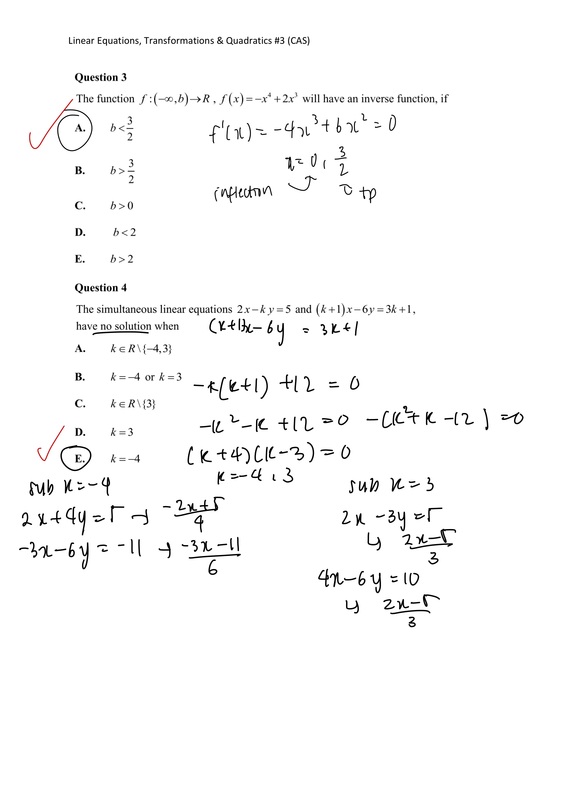 Linear Equations, Transformations & Quadratics #3 (CAS)
Question 3
The function f : (−∞, b) → R , f (x) = −x⁴ + 2x³ will have an inverse function, if
A. b < 3/2
f'(x) = −4x³ + 6x² = 0
x = 0, 3/2
B. b > 3/2
inflection
tp
C. b > 0
D. b < 2
E. b > 2
Question 4
The simultaneous linear equations 2x − k y = 5 and (k + 1)x − 6y = 3k + 1,
have no solution when
(k+1)x − 6y = 3k+1
A. k ∈ R \ {−4,3}
B. k = −4 or k = 3
−k(k+1) + 12 = 0
C. k ∈ R \ {3}
−k² − k + 12 = 0 −(k² + k − 12) = 0
D. k = 3
E. k = −4
(k+4)(k−3) = 0
k = −4, 3
sub k = −4
2x + 4y = 5 → −2x+5/4
−3x − 6y = −11 → −3x−11/6
sub k = 3
2x − 3y = 5
↳ 2x−5/3
4x − 6y = 10
↳ 2x−5/3